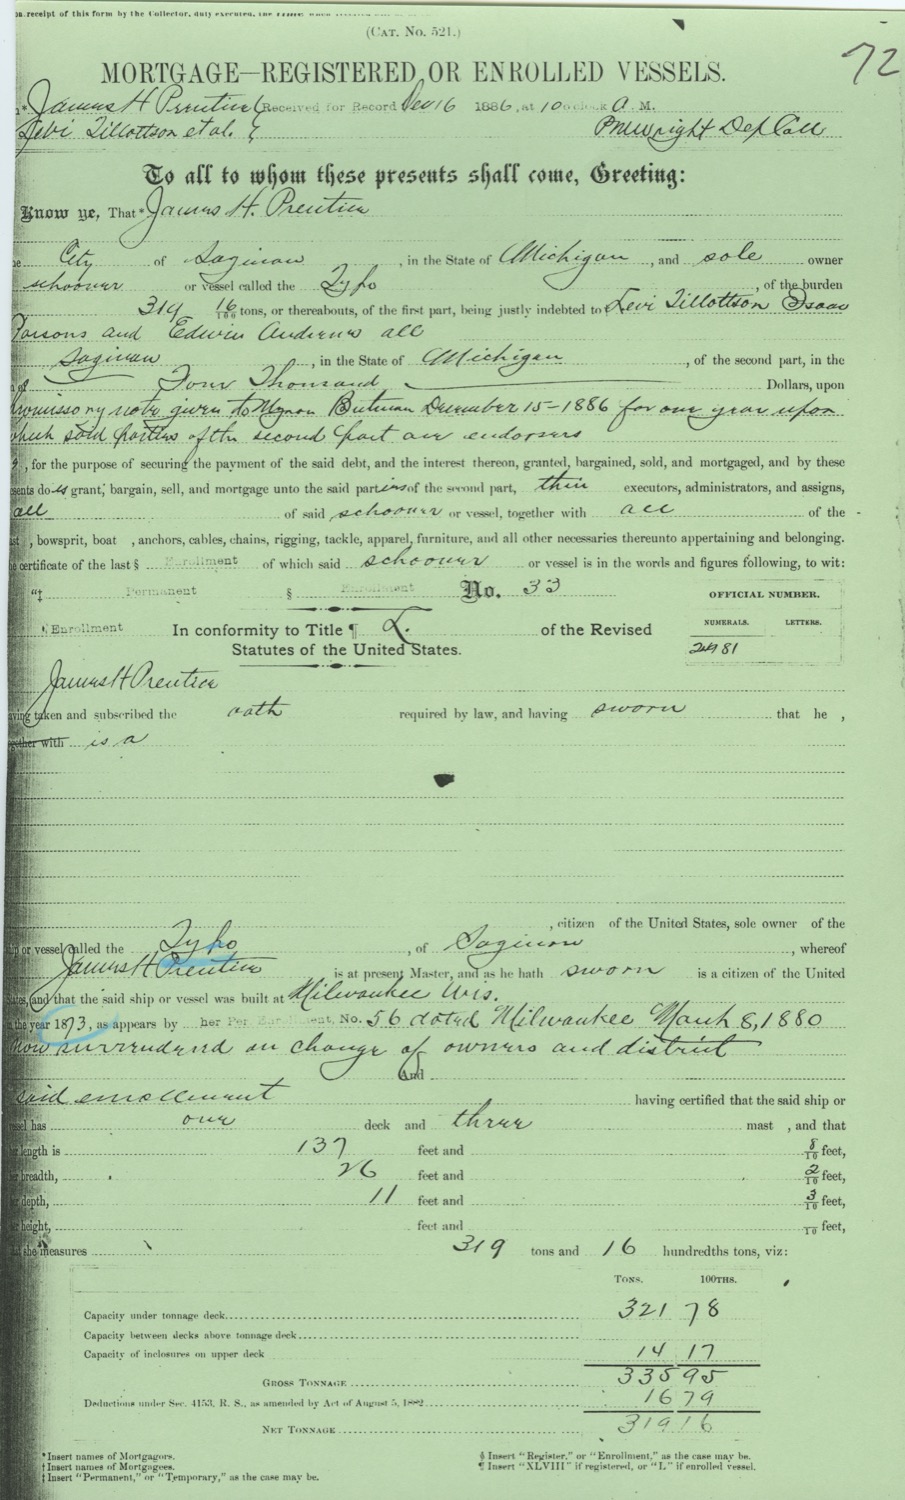 on receipt of this form by the Collector, duty executed, the
(CAT. No. 521.)
72
MORTGAGE—REGISTERED OR ENROLLED VESSELS.
James H Prentice Received for Record Dec 16 1886, at 10 o'clock A. M.
Levi Tillottson et al. Dep Coll
To all to whom these presents shall come, Greeting:
Know ye, That* James H. Prentice
City of Saginaw, in the State of Michigan, and sole owner
schooner or vessel called the Tyho, of the burden
319 16/100 tons, or thereabouts, of the first part, being justly indebted to Levi Tillottson Isaac
Parsons and Edwin Andrews all
Saginaw, in the State of Michigan, of the second part, in the
of Four Thousand Dollars, upon
promissory note given to Myron Butman December 15-1886 for one year upon
which said parties of the second part are endorsers
, for the purpose of securing the payment of the said debt, and the interest thereon, granted, bargained, sold, and mortgaged, and by these
sents do es grant, bargain, sell, and mortgage unto the said part ies of the second part, their executors, administrators, and assigns,
all of said schooner or vessel, together with all of the
, bowsprit, boat , anchors, cables, chains, rigging, tackle, apparel, furniture, and all other necessaries thereunto appertaining and belonging.
e certificate of the last § Enrollment of which said schooner or vessel is in the words and figures following, to wit:
"‡ Permanent § Enrollment No. 33
OFFICIAL NUMBER.
NUMERALS. LETTERS.
¶ Enrollment In conformity to Title ¶ L. of the Revised
Statutes of the United States.
James H Prentice
aving taken and subscribed the oath required by law, and having sworn that he ,
gether with is a
, citizen of the United States, sole owner of the
p or vessel called the Tyho, of Saginaw, whereof
James H Prentice is at present Master, and as he hath sworn is a citizen of the United
States, and that the said ship or vessel was built at Milwaukee Wis.
n the year 1873, as appears by her Per Enrollment, No. 56 dated Milwaukee March 8, 1880
now surrendered on change of owners and district
And
said enrollment having certified that the said ship or
ssel has one deck and three mast , and that
r length is 137 feet and 8/10 feet,
r breadth, 26 feet and 2/10 feet,
r depth, 11 feet and 3/10 feet,
r height, feet and /10 feet,
she measures 319 tons and 16 hundredths tons, viz:
TONS. 100THS.
Capacity under tonnage deck 321 78
Capacity between decks above tonnage deck
Capacity of inclosures on upper deck 14 17
GROSS TONNAGE 335 95
Deductions under Sec. 4153, R. S., as amended by Act of August 5, 1882 16 79
NET TONNAGE 319 16
*Insert names of Mortgagors.
†Insert names of Mortgagees.
‡Insert "Permanent," or "Temporary," as the case may be.
§ Insert "Register," or "Enrollment," as the case may be.
¶ Insert "XLVIII" if registered, or "L" if enrolled vessel.